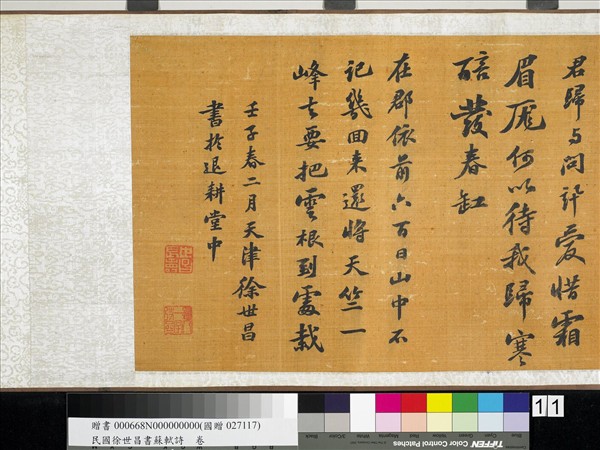 君歸與問訊愛惜霜
眉厖何以待我歸寒
醅發春缸
在郡依前六百日山中不
記幾回来還將天竺一
峰去要把雲根到處栽
壬子春二月天津徐世昌
書於退耕堂中
贈書 000668N000000000(國贈 027117)
民國徐世昌書蘇軾詩 卷
Black
3/Color
White
Magenta
Red
Yellow
Green
Cyan
Blue
TIFFEN Color Control Patches
11